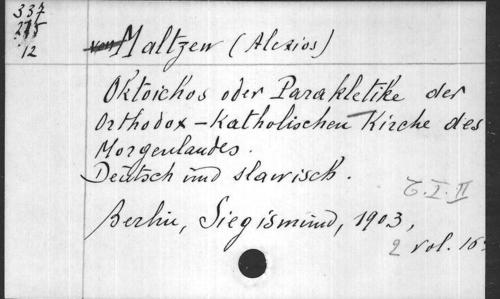 337
275
12
von Maltzew (Alexios)
Oktoichos oder Parakletike der
Orthodox-Katholischen Kirche des
Morgenlandes.
Deutsch und slawisch.
T. I. II
Berlin, Siegismund, 1903,
2 vol. 16º